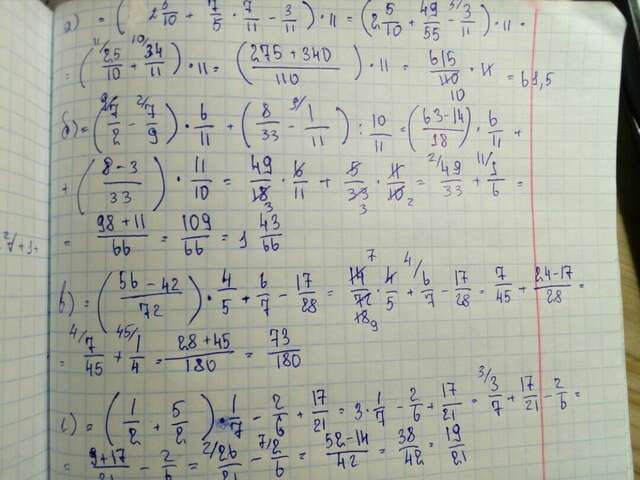 а) = (2 5/10 + 7/5 · 7/11 - 3/11) · 11 = (2 5/10 + 49/55 - 3/11) · 11 =
= (25/10 + 34/11) · 11 = (275+340)/110 · 11 = 615/110 · 11 = 61,5
б) = (7/2 - 7/9) · 6/11 + (8/33 - 1/11) : 10/11 = (63-14)/18 · 6/11 +
+ (8-3)/33 · 11/10 = 49/18 · 6/11 + 5/33 · 11/10 = 49/33 + 1/6 =
= (98+11)/66 = 109/66 = 1 43/66
в) = (56-42)/72 · 4/5 + 6/7 - 17/28 = 14/72 · 4/5 + 6/7 - 17/28 = 7/45 + (24-17)/28 =
= 7/45 + 1/4 = (28+45)/180 = 73/180
г) = (1/2 + 5/2) · 1/7 - 2/6 + 17/21 = 3 · 1/7 - 2/6 + 17/21 = 3/7 + 17/21 - 2/6 =
= (9+17)/21 - 2/6 = 26/21 - 2/6 = (52-14)/42 = 38/42 = 19/21